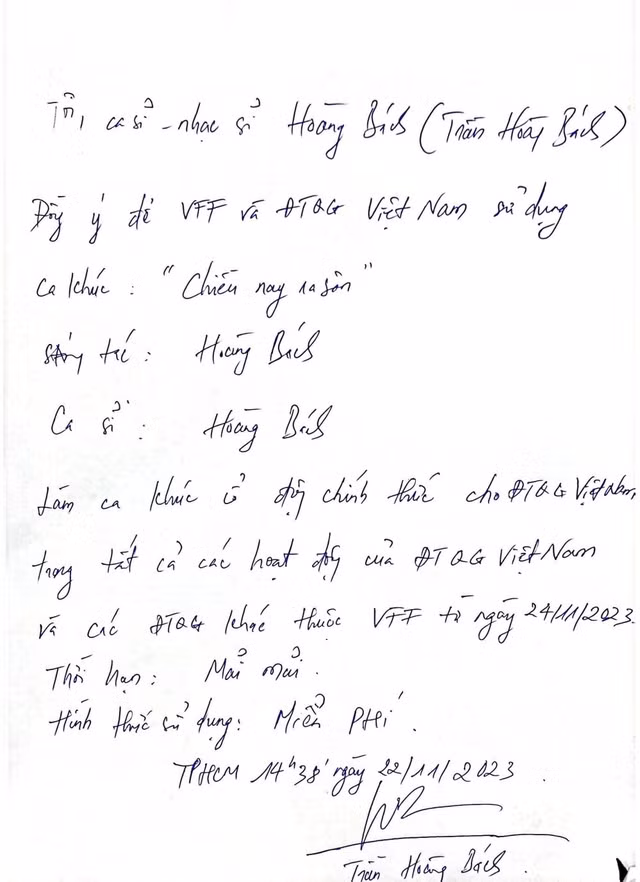 Tôi, ca sĩ - nhạc sĩ Hoàng Bách (Trần Hoàng Bách)
Đồng ý để VFF và ĐTQG Việt Nam sử dụng
Ca khúc : "Chiều nay ra sân"
sáng tác : Hoàng Bách
Ca sĩ : Hoàng Bách
Làm ca khúc cổ động chính thức cho ĐTQG Việt Nam
trong tất cả các hoạt động của ĐTQG Việt Nam
và các ĐTQG khác thuộc VFF từ ngày 24/11/2023.
Thời hạn : Mãi mãi.
Hình thức sử dụng: MIỄN PHÍ.
TPHCM 14h38' ngày 22/11/2023.
Trần Hoàng Bách.